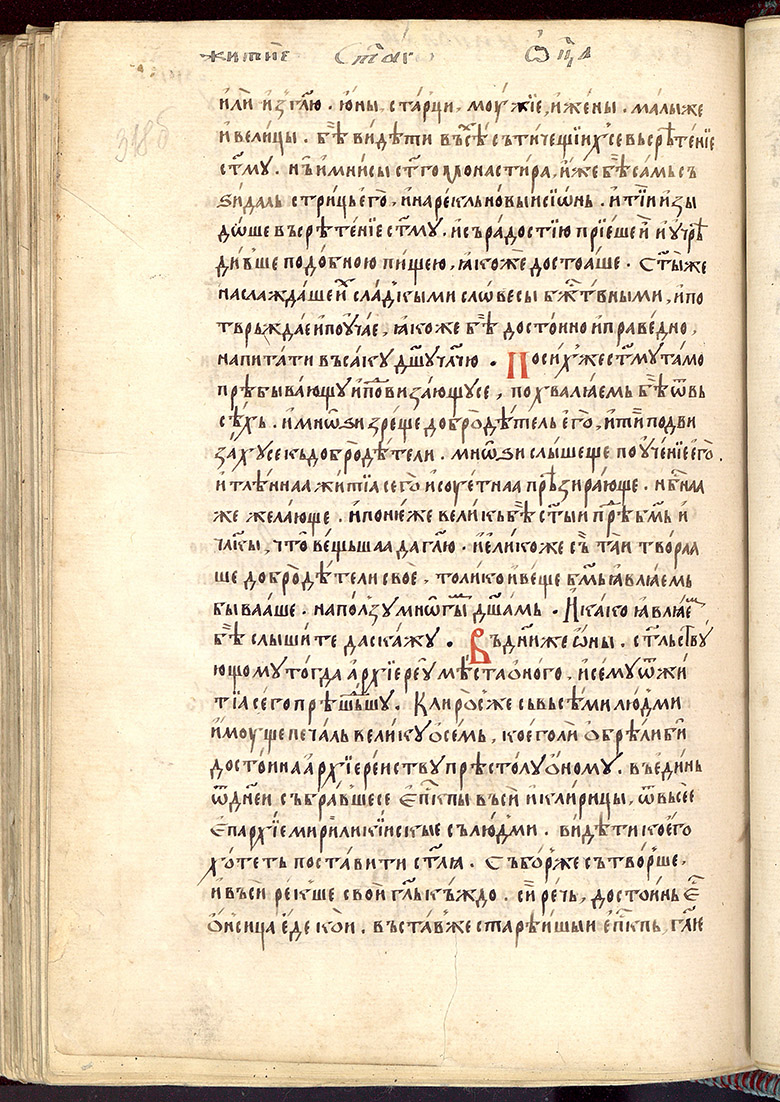 житїе Ст҃аго Ѿц҃а
318б
и҆лѝ и҆зг҃лю . ю҆ны, ста́рци, моу́жїе, и҆ жены . малыже
и҆ велицы . бѣ̀ ви́дѣти въсѐ сътичещїихсе въ срѣте́нїе
ст҃му . нъ̀ и҆ мнисы ст҃го мѡнастира, и҆же бѣ̀ самь съ
ѕи́даль стрицъ е҆го̀, и҆ наре́кль новыи сїѡ́нь . и҆ тїи и҆зы
до́ше въ срѣте́нїе ст҃му . и҆ съ ра́достїю прїе́ше и҆ и҆ учрѣ
ди́вше подо́бною пи́щею, ꙗ҆коже досто́аше . Ст҃ыже
наслажда́ше и҆ сла́дкыми слѡвесы бж҃твными, и҆ по
твръжда́е и҆ поꙋча́е, ꙗ҆коже бѣ̀ досто́ино и҆ пра́ведно,
напита́ти въса́ку дш҃у а́лчю . По си́хже ст҃му тамо
прѣбыва́ющу и҆ подвиза́ющусе, похвалꙗ́емь бѣ̀ ѿ вь
сѣ́хь . и҆ мнѡѕи зре́ще добродѣ́тель е҆го̀, и҆ тїи подви
за́хусе къ добродѣ́тели . мнѡѕи слы́шеще поуче́нїе е҆го̀ .
и҆ тлѣ́ннаа житїа сего̀ и҆ соуе́тнаа прѣзира́юще . нб҃наа
же жела́юще . и҆ поне́же велик бѣ̀ ст҃ыи прѣ́д бг҃мь и҆
чл҃кы, что̀ ве́щьшаа да г҃лю . и҆ е҆ликоже съ̀ таи твора
ше добродѣ́тели своѐ, толико и҆ веще бг҃мь ꙗ҆влꙗ́емь
быва́аше . на по́лзу мнѡгы́м дш҃амь . И҆ како ꙗ҆влꙗ́ем
бѣ̀ слы́шите да скажу . Въ дни́же ѡ҆ны . ст҃льству́
ющому тогда а҆рхїере́у мѣ́ста о҆ного . и҆ сему ѿ жи
тїа сего прѣше́дшу . Кли́росже съ вьсѣми людми
и҆му́ще печа́ль вели́ку о҆ семь, кое́го лѝ о҆брѣ́ли би
досто́ина а҆рхїере́иству прѣсто́лу о҆ному . въ е҆ди́нь
ѿ дне́и събра́вшесе Е҆пк҃пы въсѝ и҆ кли́рицы, ѿ все́е
Е҆пархїе мирилики́искые съ лю́дми . ви́дѣти кое́го
хо́теть поста́вити ст҃лꙗ . Събо́рже сътво́рше,
и҆ въси ре́кше свои гл҃ь къждо . си́ речь, досто́инь Е҆
ѻ҆нсица е҆де кои . въста́вже старѣ́ишыи е҆пк҃пь, гл҃ю